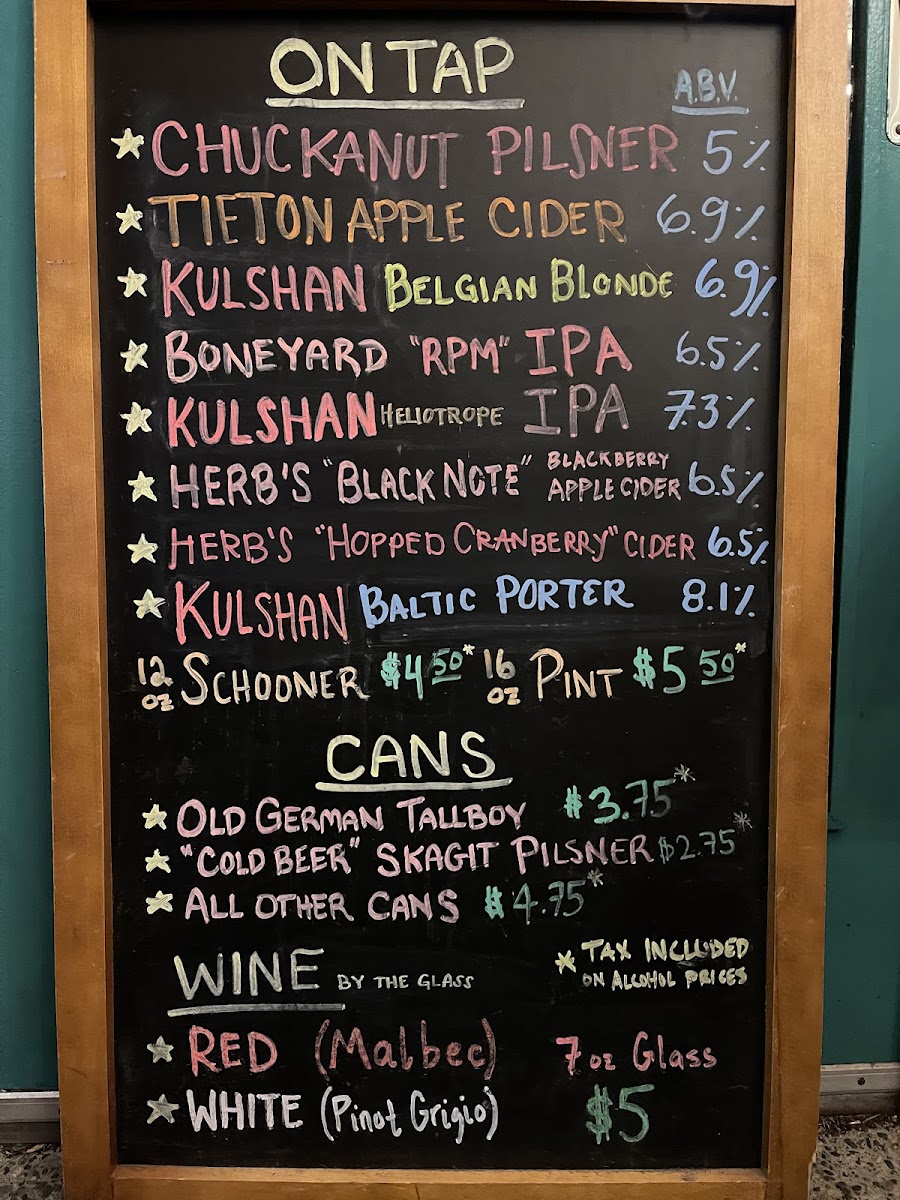 ON TAP
A.B.V.
CHUCKANUT PILSNER 5%
TIETON APPLE CIDER 6.9%
KULSHAN BELGIAN BLONDE 6.9%
BONEYARD "RPM" IPA 6.5%
KULSHAN HELIOTROPE IPA 7.3%
HERB'S "BLACK NOTE" BLACKBERRY APPLE CIDER 6.5%
HERB'S "HOPPED CRANBERRY" CIDER 6.5%
KULSHAN BALTIC PORTER 8.1%
12 oz SCHOONER $4 50* 16 oz PINT $5 50*
CANS
OLD GERMAN TALLBOY $3.75*
"COLD BEER" SKAGIT PILSNER $2.75*
ALL OTHER CANS $4.75*
WINE BY THE GLASS
* TAX INCLUDED
ON ALCOHOL PRICES
RED (Malbec) 7 oz Glass
WHITE (Pinot Grigio) $5